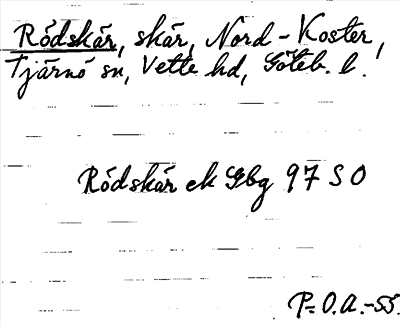 Rödskär, skär, Nord-Koster,
Tjärnö sn, Vette hd, Göteb. l.
Rödskär ek Gbg 97 SO
P= O.A.-55.